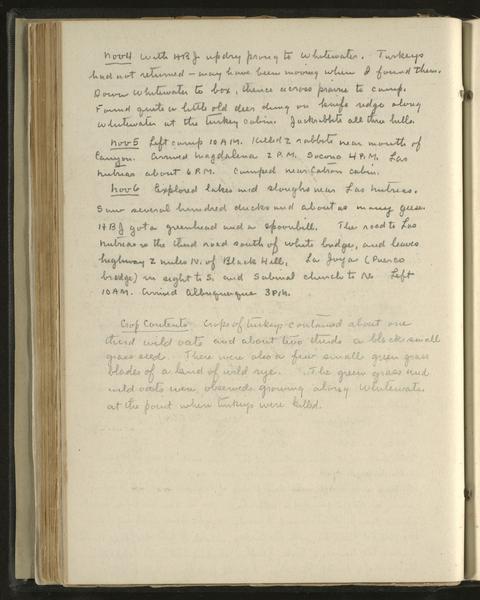 Nov 4 With HBJ up dry prong to Whitewater. Turkeys
had not returned – may have been moving when I found them.
Down Whitewater to box, thence across prairie to camp.
Found quite a little old deer dung on knife ridge along
Whitewater at the turkey cabin. Jackrabbits all thru hills.
Nov 5 Left camp 10 A.M. Killed 2 rabbits near mouth of
Canyon. Arrived Magdalena 2 P.M. Socorro 4 P.M. Las
Nutrias about 6 P.M. Camped near Catron cabin.
Nov 6 Explored lakes and sloughs near Las Nutrias.
Saw several hundred ducks and about as many geese.
HBJ got a greenhead and a spoonbill. The road to Las
Nutrias is the third road south of white bridge, and leaves
highway 2 miles N. of Black Hill. La Joya (Puerco
bridge) in sight to S. and Sabinal church to N. Left
10 A.M. Arrived Albuquerque 3 P.M.
Crop Contents Crops of turkeys contained about one
third wild oats and about two thirds a black small
grass seed. There were also a few small green grass
blades of a kind of wild rye. The green grass and
wild oats were observed growing along Whitewater
at the point where turkeys were killed.